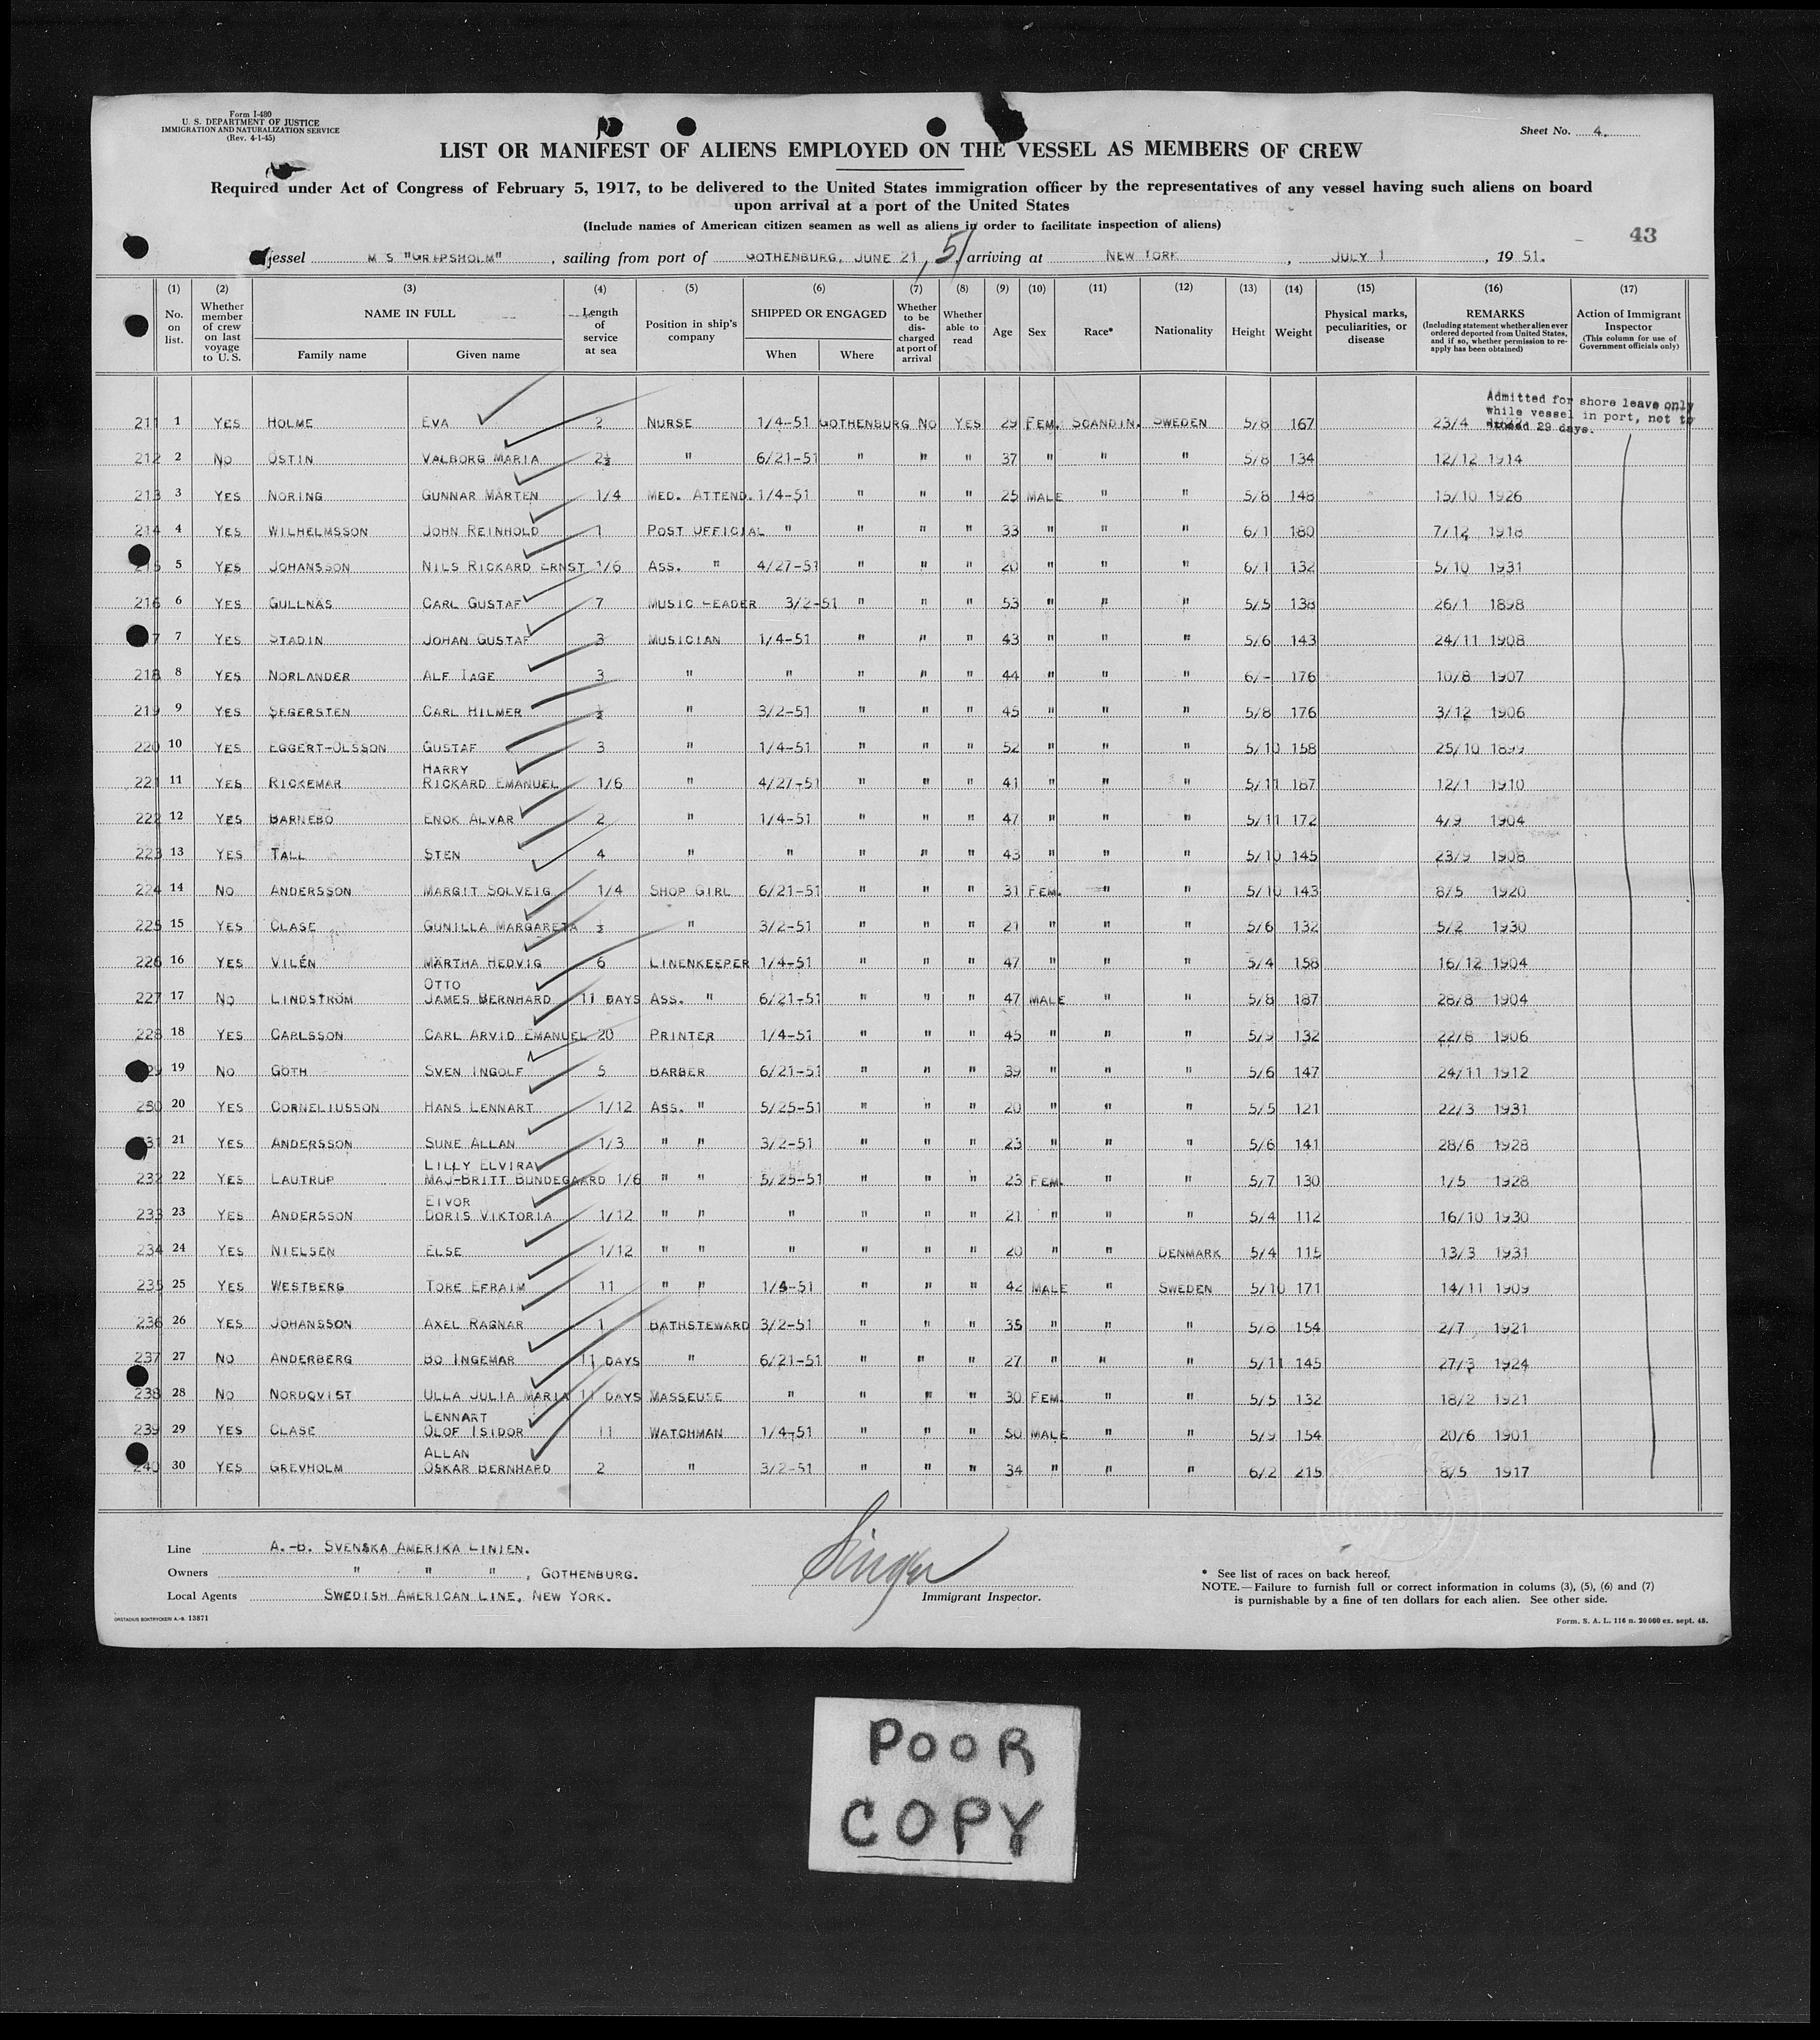 Form I-480
U. S. DEPARTMENT OF JUSTICE
IMMIGRATION AND NATURALIZATION SERVICE
(Rev. 4-1-45)
Sheet No. 4.
LIST OR MANIFEST OF ALIENS EMPLOYED ON THE VESSEL AS MEMBERS OF CREW
Required under Act of Congress of February 5, 1917, to be delivered to the United States immigration officer by the representatives of any vessel having such aliens on board
upon arrival at a port of the United States
(Include names of American citizen seamen as well as aliens in order to facilitate inspection of aliens)
43
Vessel M S "GRIPSHOLM", sailing from port of GOTHENBURG, JUNE 21, 51 arriving at NEW YORK, JULY 1, 1951.
(1) No. on list.
(2) Whether member of crew on last voyage to U. S.
(3) NAME IN FULL
Family name
Given name
(4) Length of service at sea
(5) Position in ship's company
(6) SHIPPED OR ENGAGED
When
Where
(7) Whether to be discharged at port of arrival
(8) Whether able to read
(9) Age
(10) Sex
(11) Race*
(12) Nationality
(13) Height
(14) Weight
(15) Physical marks, peculiarities, or disease
(16) REMARKS
(Including statement whether alien ever ordered deported from United States, and if so, whether permission to reapply has been obtained)
(17) Action of Immigrant Inspector
(This column for use of Government officials only)
Admitted for shore leave only
while vessel in port, not to
exceed 29 days.
211 1 YES HOLME EVA 2 NURSE 1/4-51 GOTHENBURG NO YES 29 FEM. SCANDIN. SWEDEN 5/8 167 23/4
212 2 NO ÖSTIN VALBORG MARIA 2½ " 6/21-51 " " " 37 " " " 5/8 134 12/12 1914
213 3 YES NORING GUNNAR MÅRTEN 1/4 MED. ATTEND. 1/4-51 " " " 25 MALE " " 5/8 148 15/10 1926
214 4 YES WILHELMSSON JOHN REINHOLD 1 POST OFFICIAL " " " " 33 " " " 6/1 180 7/12 1918
215 5 YES JOHANSSON NILS RICKARD ERNST 1/6 ASS. " 4/27-51 " " " 20 " " " 6/1 132 5/10 1931
216 6 YES GULLNÄS CARL GUSTAF 7 MUSIC LEADER 3/2-51 " " " 53 " " " 5/5 138 26/1 1898
7 7 YES STADIN JOHAN GUSTAF 3 MUSICIAN 1/4-51 " " " 43 " " " 5/6 143 24/11 1908
218 8 YES NORLANDER ALF TAGE 3 " " " " " 44 " " " 6/- 176 10/8 1907
219 9 YES SEGERSTEN CARL HILMER ½ " 3/2-51 " " " 45 " " " 5/8 176 3/12 1906
220 10 YES EGGERT-OLSSON GUSTAF 3 " 1/4-51 " " " 52 " " " 5/10 158 25/10 1899
HARRY
221 11 YES RICKEMAR RICKARD EMANUEL 1/6 " 4/27-51 " " " 41 " " " 5/11 187 12/1 1910
222 12 YES BARNEBO ENOK ALVAR 2 " 1/4-51 " " " 47 " " " 5/11 172 4/9 1904
223 13 YES TALL STEN 4 " " " " " 43 " " " 5/10 145 23/9 1908
224 14 NO ANDERSSON MARGIT SOLVEIG 1/4 SHOP GIRL 6/21-51 " " " 31 FEM. " " 5/10 143 8/5 1920
225 15 YES CLASE GUNILLA MARGARETA ½ " 3/2-51 " " " 21 " " " 5/6 132 5/2 1930
226 16 YES VILÉN MÄRTHA HEDVIG 6 LINENKEEPER 1/4-51 " " " 47 " " " 5/4 158 16/12 1904
OTTO
227 17 NO LINDSTRÖM JAMES BERNHARD 11 DAYS ASS. " 6/21-51 " " " 47 MALE " " 5/8 187 28/8 1904
228 18 YES CARLSSON CARL ARVID EMANUEL 20 PRINTER 1/4-51 " " " 45 " " " 5/9 132 22/8 1906
29 19 NO GÖTH SVEN INGOLF 5 BARBER 6/21-51 " " " 39 " " " 5/6 147 24/11 1912
230 20 YES CORNELIUSSON HANS LENNART 1/12 ASS. " 5/25-51 " " " 20 " " " 5/5 121 22/3 1931
31 21 YES ANDERSSON SUNE ALLAN 1/3 " " 3/2-51 " " " 23 " " " 5/6 141 28/6 1928
LILLY ELVIRA
232 22 YES LAUTRUP MAJ-BRITT BUNDEGAARD 1/6 " " 5/25-51 " " " 23 FEM. " " 5/7 130 1/5 1928
EIVOR
233 23 YES ANDERSSON DORIS VIKTORIA 1/12 " " " " " " 21 " " " 5/4 112 16/10 1930
234 24 YES NIELSEN ELSE 1/12 " " " " " " 20 " " DENMARK 5/4 115 13/3 1931
235 25 YES WESTBERG TORE EFRAIM 11 " " 1/4-51 " " " 42 MALE " SWEDEN 5/10 171 14/11 1909
236 26 YES JOHANSSON AXEL RAGNAR 1 BATHSTEWARD 3/2-51 " " " 35 " " " 5/8 154 2/7 1921
237 27 NO ANDERBERG BO INGEMAR 11 DAYS " 6/21-51 " " " 27 " " " 5/11 145 27/3 1924
238 28 NO NORDQVIST ULLA JULIA MARIA 11 DAYS MASSEUSE " " " " 30 FEM. " " 5/5 132 18/2 1921
LENNART
239 29 YES CLASE OLOF ISIDOR 11 WATCHMAN 1/4-51 " " " 50 MALE " " 5/9 154 20/6 1901
ALLAN
240 30 YES GREVHOLM OSKAR BERNHARD 2 " 3/2-51 " " " 34 " " " 6/2 215 8/5 1917
Line A.-B. SVENSKA AMERIKA LINIEN.
Owners " " ", GOTHENBURG.
Local Agents SWEDISH AMERICAN LINE, NEW YORK.
Singer
Immigrant Inspector.
* See list of races on back hereof.
NOTE.—Failure to furnish full or correct information in colums (3), (5), (6) and (7)
is punishable by a fine of ten dollars for each alien. See other side.
ORSTADIUS BOKTRYCKERI A.-B. 13871
Form. S. A. L. 116 n. 20 000 ex. sept. 48.
POOR
COPY